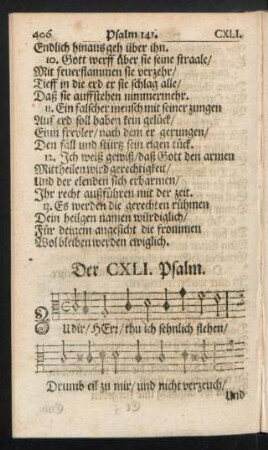 406 Psalm 141. CXLI.
Endlich hinaus geh über ihn.
10. Gott werff über sie seine straale/
Mit feuerflammen sie verzehr/
Tieff in die erd er sie schlag alle/
Daß sie auffstehen nimmermehr.
11. Ein falscher mensch mit seiner zungen
Auf erd soll haben kein gelück/
Einn frevler/ nach dem er gerungen/
Den fäll und stürtz sein eigen tück.
12. Ich weiß gewiß/ daß Gott den armen
Mittheilen wird gerechtigkeit/
Und der elenden sich erbarmen/
Ihr recht ausführen mit der zeit.
13. Es werden die gerechten rühmen
Dein heilgen namen würdiglich/
Für deinem angesicht die frommen
Wol bleiben werden ewiglich.
Der CXLI. Psalm.
ZU dir/ HErr/ thu ich sehnlich flehen/
Drumb eil zu mir/ und nicht verzeuch/
Und